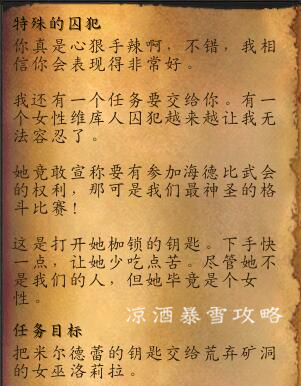 特殊的囚犯
你真是心狠手辣啊，不错，我相
信你会表现得非常好。
我还有一个任务要交给你。有一
个女性维库人囚犯越来越让我无
法容忍了。
她竟敢宣称要有参加海德比武会
的权利，那可是我们最神圣的格
斗比赛！
这是打开她枷锁的钥匙。下手快
一点，让她少吃点苦。尽管她不
是我们的人，但她毕竟是个女
性。
凉酒暴雪攻略
任务目标
把米尔德蕾的钥匙交给荒弃矿洞
的女巫洛莉拉。